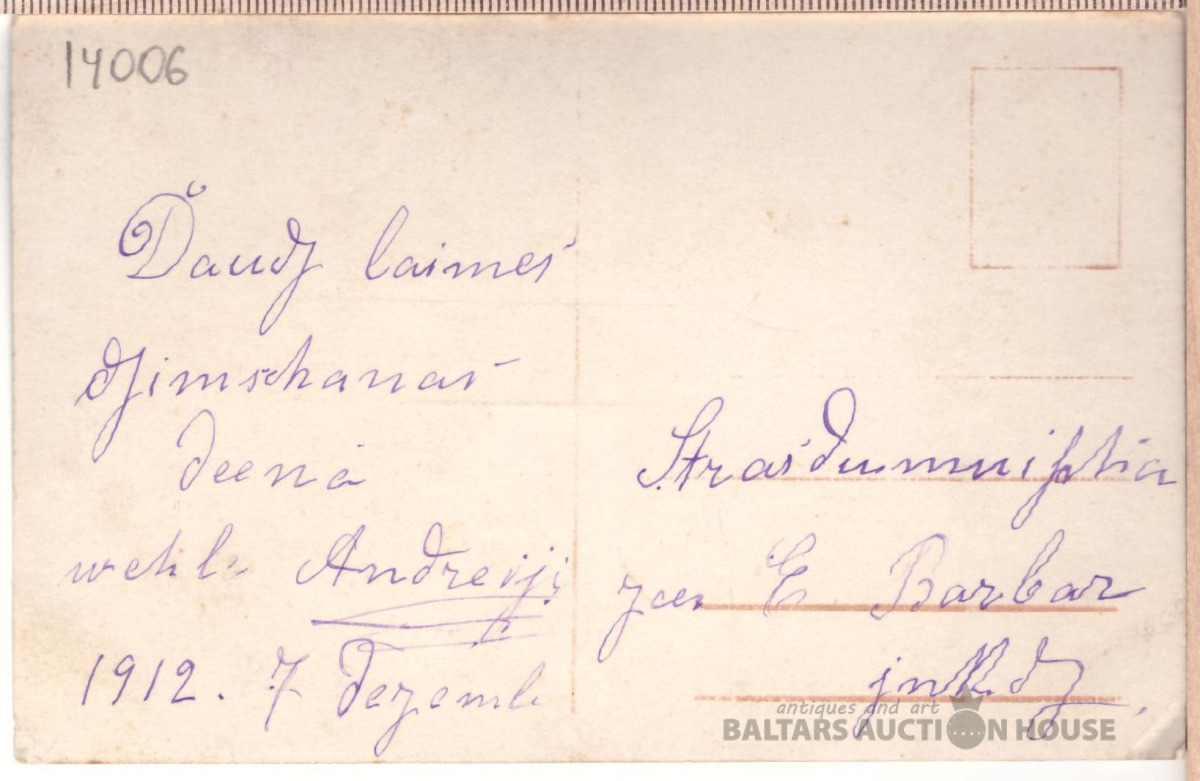 14006
Daudz laimes
dzimschanas
deenā
wehl Andreiji
1912. 7 dezemb
Strasdumuischa
E Barbar
antiques and art
BALTARS AUCTION HOUSE